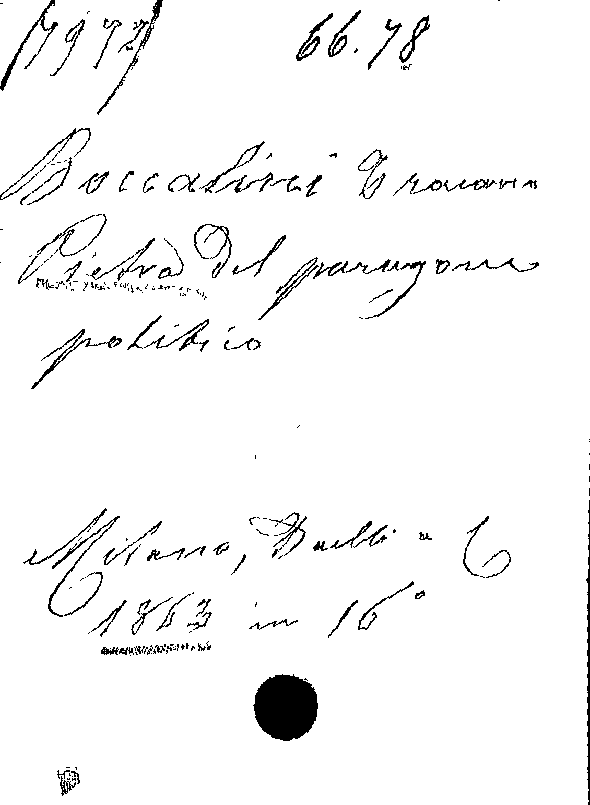 (7972) 66.78
Boccalini Traiano
Pietra del paragone
politico
Milano, Daelli e C
1863 in 16°